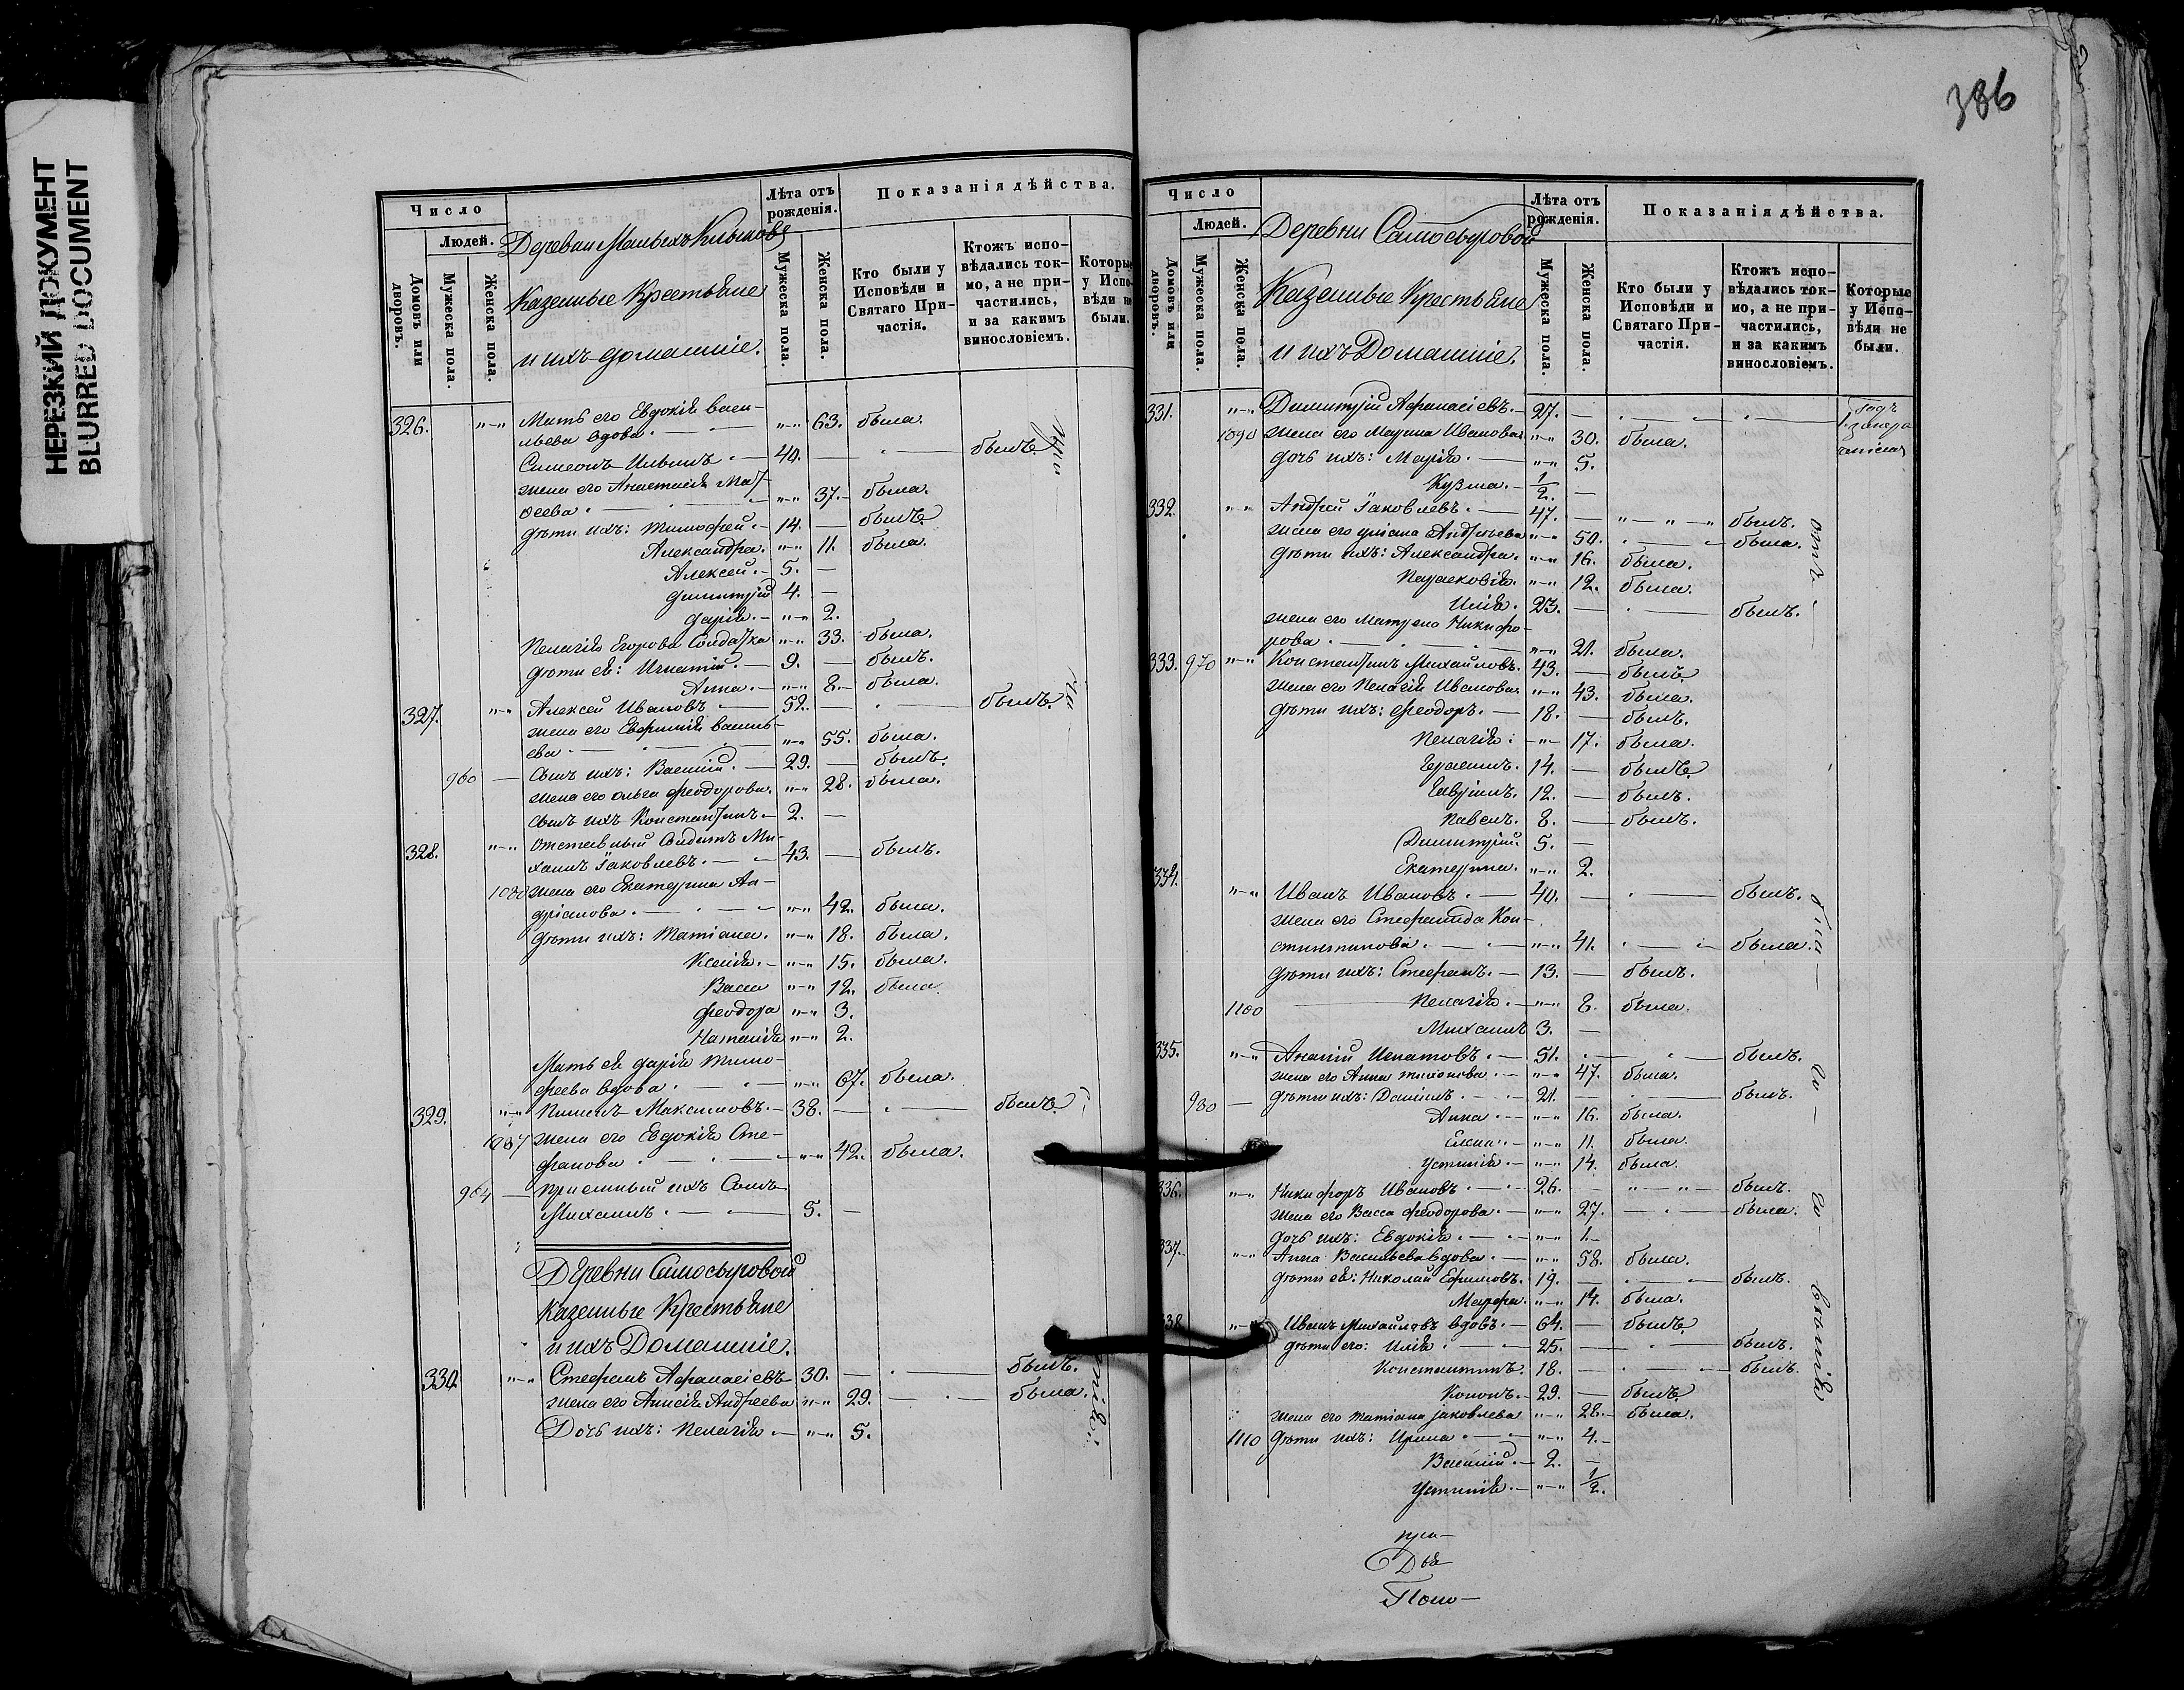 НЕРЕЗКИЙ ДОКУМЕНТ
BLURRED DOCUMENT
Число
Людей.
Домовъ или дворовъ.
Мужеска пола.
Женска пола.
Деревни Малыхъ
Казенные Крестьяне
и ихъ домашніе.
Лѣта отъ рожденія.
Мужеска пола.
Женска пола.
Показанія дѣйства.
Кто были у Исповѣди и Святаго Причастія.
Ктожъ исповѣдались токмо, а не причастились, и за какимъ винословіемъ.
Которые у Исповѣди не были.
326. "-" Мать его Евдокія Васи-
льева вдова. "-" 63. была.
Симеонъ Ильинъ. 40. — былъ.
жена его Анастасія Мат-
ѳеева. "-" 37. была.
дѣти ихъ: Тимофей. 14. — былъ.
Александра. "-" 11. была.
Алексей. 5. —
Димитрій 4. —
Дарія. "-" 2.
Пелагія Егорова Солдатка "-" 33. была.
дѣти ея: Игнатій. 9. — былъ.
Анна. "-" 8. была.
327. "-" Алексей Ивановъ 52. — былъ.
жена его Евфимія Василь-
ева "-" 55. была.
960 — Сынъ ихъ: Василій. 29. — былъ.
жена его Ольга Феодорова "-" 28. была.
сынъ ихъ Константинъ 2. —
328. "-" Отставный Солдатъ Ми-
хаилъ Іаковлевъ. 43. — былъ.
1080 жена его Екатерина Ан-
дріанова. "-" 42. была.
дѣти ихъ: Татіана. "-" 18. была.
Ксенія. "-" 15. была.
Васса "-" 12. была.
Феодора "-" 3.
Наталія "-" 2.
Мать ея Дарія Тимо-
феева вдова. "-" 67. была.
329. "-" Пименъ Максимовъ. 38. — былъ.
1087 жена его Евдокія Сте-
фанова "-" 42. была.
964 — пріемный ихъ Сынъ
Михаилъ. 5. —
Деревни Самосыровой
Казенные Крестьяне
и ихъ Домашніе.
330. "-" Стефанъ Афанасіевъ 30. — былъ.
жена его Анисія Андреева "-" 29. — была.
Дочь ихъ: Пелагія "-" 5.
386
Число
Людей.
Домовъ или дворовъ.
Мужеска пола.
Женска пола.
Деревни Самосыровой
Казенные Крестьяне
и ихъ Домашніе.
Лѣта отъ рожденія.
Мужеска пола.
Женска пола.
Показанія дѣйства.
Кто были у Исповѣди и Святаго Причастія.
Ктожъ исповѣдались токмо, а не причастились, и за какимъ винословіемъ.
Которые у Исповѣди не были.
331. "-" Димитрій Афанасіевъ. 27. —
1090 жена его Марина Иванова "-" 30. была.
дочь ихъ: Марія. "-" 5.
Кузма. 1/2. —
332. "-" Андрей Іаковлевъ. 47. — былъ.
жена его Андреева "-" 50. — была.
дѣти ихъ: Александра. "-" 16. была.
Парасковія. "-" 12. была.
Илія. 23. — былъ.
жена его Матрена Никифо-
рова "-" 21. была.
333. 970 "-" Константинъ Михайловъ. 43. — былъ
жена его Пелагія Иванова "-" 43. была.
дѣти ихъ: Феодоръ. 18. — былъ.
Пелагія "-" 17. была.
Герасимъ. 14. — былъ
Гавріилъ. 12. — былъ.
Павелъ. 8. — былъ.
Димитрій. 5. —
Екатерина. "-" 2.
334. "-" Иванъ Ивановъ. 40. — былъ.
жена его Стефанида Кон-
стинтинова. "-" 41. — была.
дѣти ихъ: Стефанъ. 13. — былъ.
1100 Пелагія. "-" 8. была.
Михаилъ 3. —
335. "-" Ананій Игнатовъ. 51. — былъ.
жена его Анна Тихонова. "-" 47. была.
980 — дѣти ихъ: Даніилъ. 21. — былъ.
Анна. "-" 16. была.
Елена. "-" 11. была.
Устинія. "-" 14. была.
336. "-" Никифоръ Ивановъ. 26. — былъ.
жена его Васса Феодорова. "-" 27. — была.
дочь ихъ: Евдокія. "-" 1.
337. "-" Анна Васильева вдова. "-" 58. была.
дѣти ея: Николай Ефимовъ. 19. — былъ.
Марфа. "-" 14. была.
338. "-" Иванъ Михайловъ вдовъ. 64. — былъ
дѣти его: Илія 25. — былъ.
Константинъ. 18. — былъ.
Кононъ. 29. — былъ
жена его Татіана Іаковлева "-" 28. была.
1110 дѣти ихъ: Ирина "-" 4.
Василій. 2. —
Устинія. "-" 1/2.
при-
Два